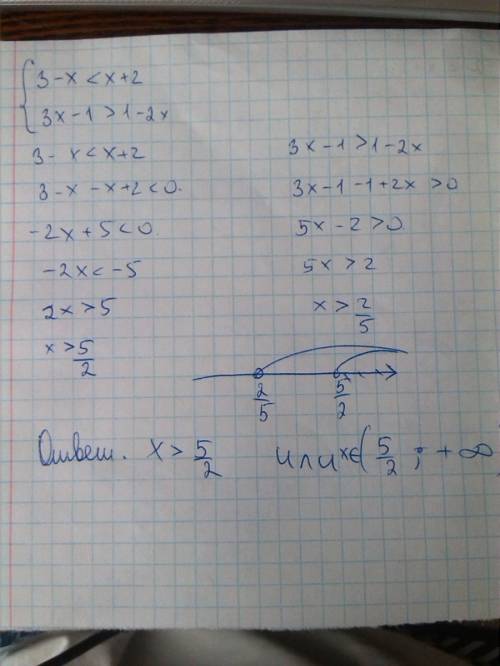 { 3-x<x+2
3x-1>1-2x
3-x<x+2
3-x-x+2<0.
-2x+5<0.
-2x<-5
2x>5
x>5/2
3x-1>1-2x
3x-1-1+2x>0
5x-2>0.
5x>2
x>2/5
2/5 5/2
Ответ. x>5/2 или x∈(5/2; +∞